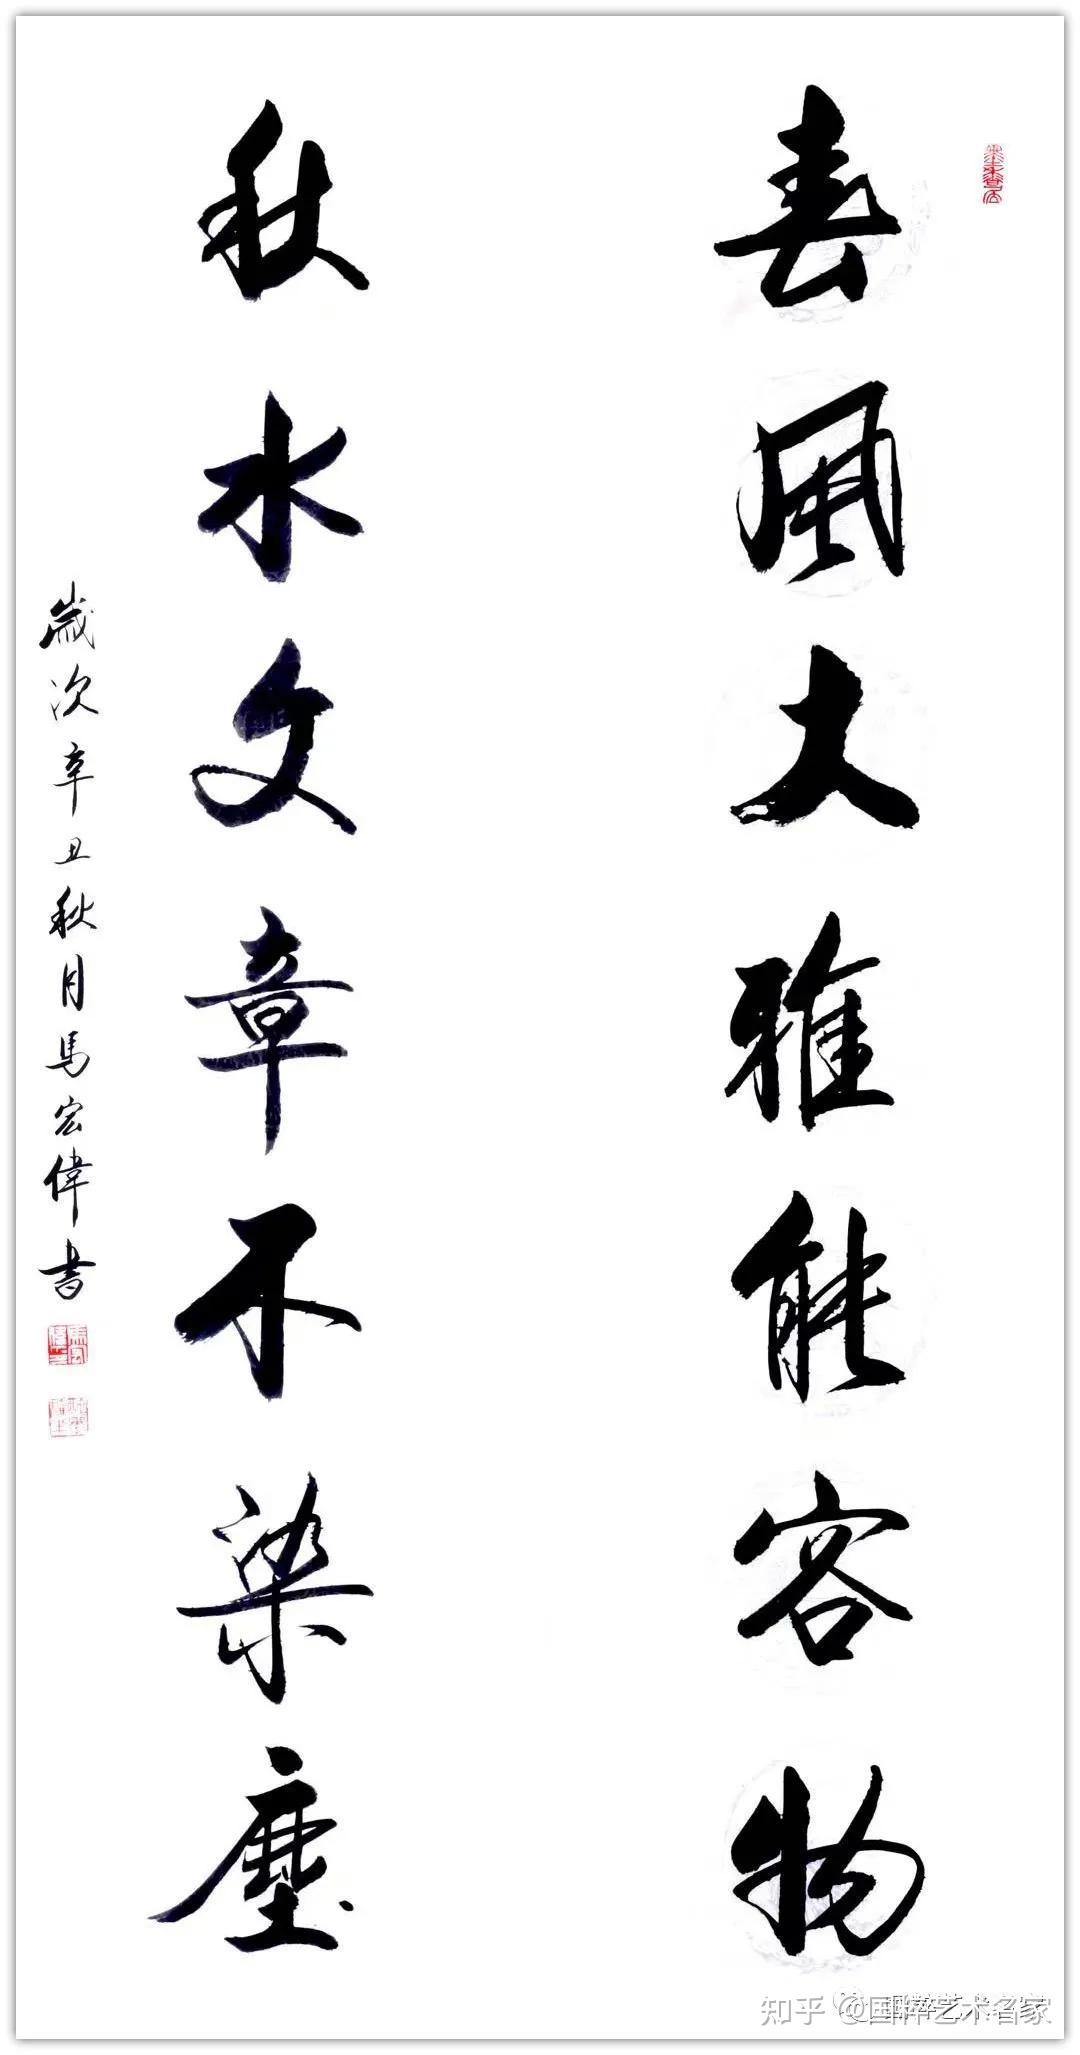 春风大雅能容物
秋水文章不染塵
歲次辛丑秋月馬宏偉書
知乎 @国粹艺术名家